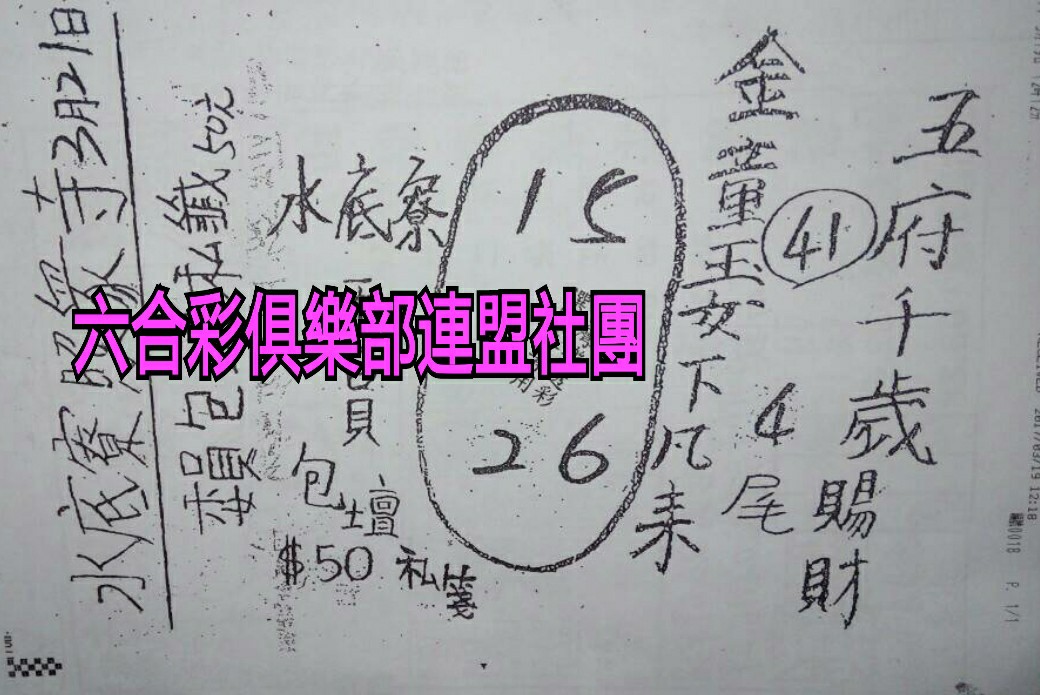 五府千歲賜財
41
4尾
金童玉女下凡来
15
26
水底寮
包壇
$50 私籤
賴包 私籤50元
水底寮 照眾寺3月21日
六合彩俱樂部連盟社團
2017/03/19 12:18
0018 P. 1/1